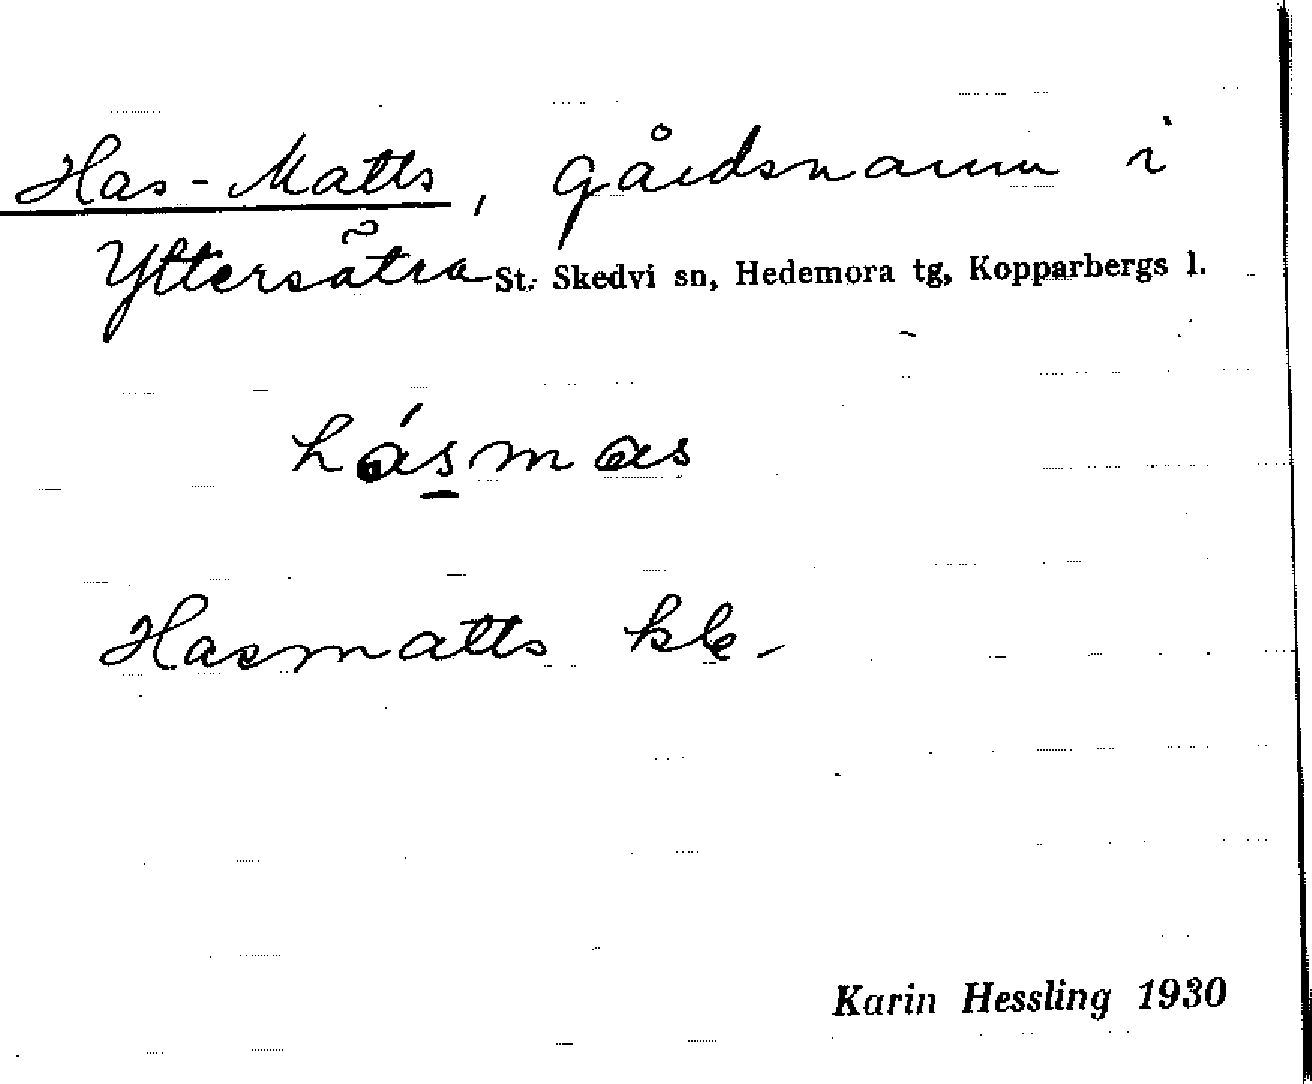 Has-Matts, gårdsnamn i
Yttersätra St. Skedvi sn, Hedemora tg, Kopparbergs l.
hásmas
Hasmatts kle.
Karin Hessling 1930